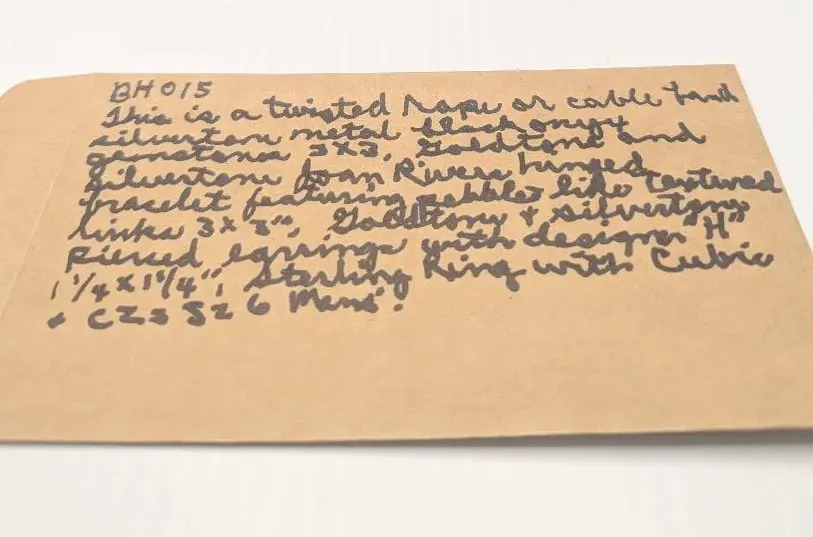 BH 015
This is a twisted rope or cable band
silvertone metal black onyx
gemstones 3x3, Goldtone and
Silvertone Joan Rivers hinged
bracelet featuring pebble like textured
links 3x3", Goldtone + silvertone
Pierced earrings with designer "H"
1 1/4 x 1 1/4", Sterling Ring with Cubic
+ CZs Sz 6 Mens.